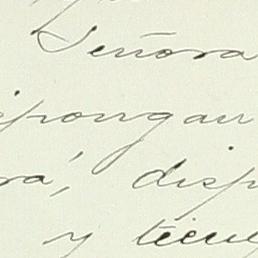 Señora
ipongan
rá, disp
y tien